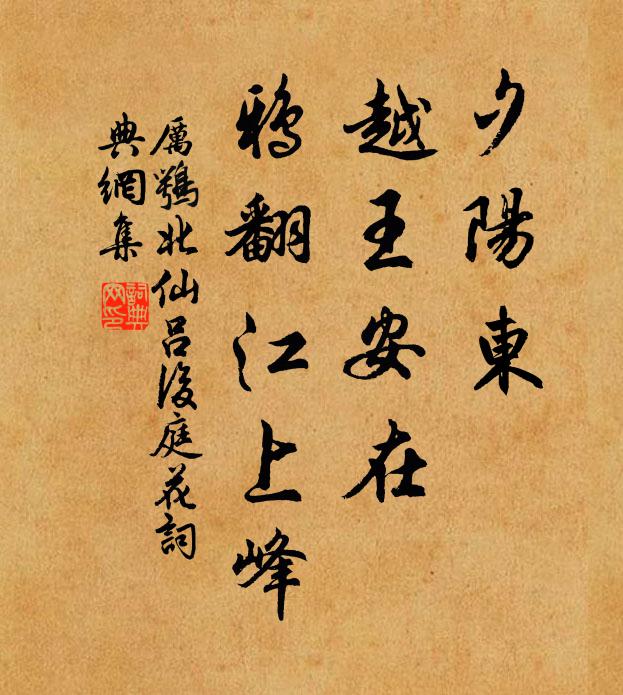 夕陽東
越王安在
鴉翻江上峰
厲鶚北仙吕後庭花詞
典網集
詞典網印